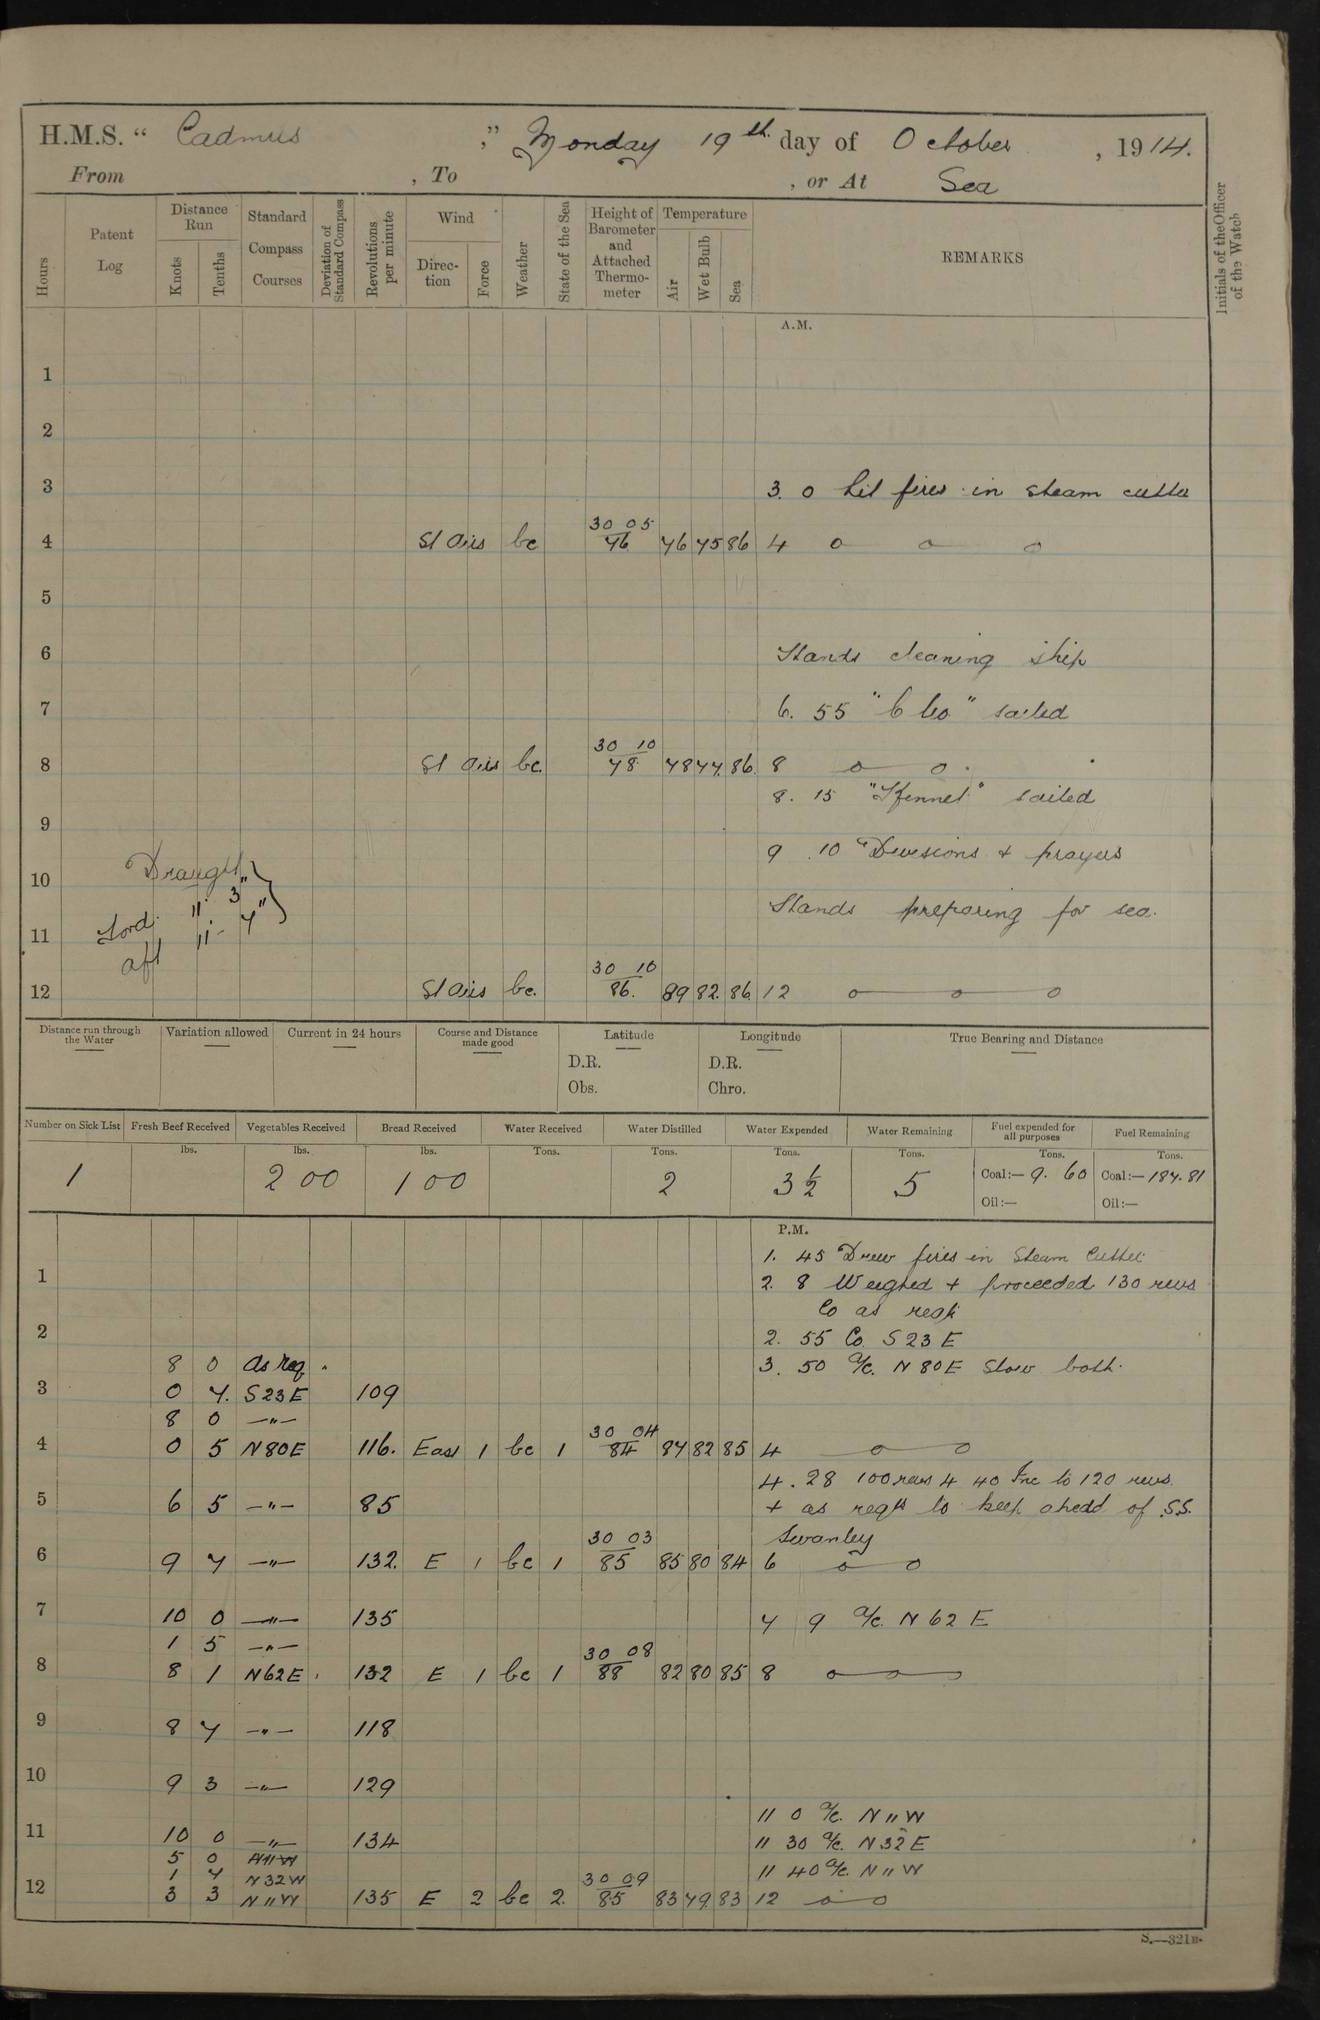 H.M.S. “ Cadmus ,” Monday 19th day of October , 1914.
From , To , or At Sea
Hours
Patent Log
Distance Run
Knots Tenths
Standard Compass Courses
Deviation of Standard Compass
Revolutions per minute
Wind
Direction Force
Weather
State of the Sea
Height of Barometer and Attached Thermometer
Temperature
Air Wet Bulb Sea
REMARKS
Initials of the Officer of the Watch
A.M.
1
2
3 3. 0 Lit fires in steam cutter
30 05
4 St airs bc 76 76 75 86 4 o o o
5
6 Hands cleaning ship
7 6. 55 " Clio " sailed
30 10
8 St airs bc. 78 78 77 86 8 o o
8. 15 sailed
9
9 .10 Divisions + prayers
Draught
10
Ford. 11' 3"
Hands preparing for sea.
11
aft 11' - 7"
30 10
12 St airs bc. 86. 89 82 86 12 o o o
Distance run through the Water
Variation allowed
Current in 24 hours
Course and Distance made good
Latitude
D.R.
Obs.
Longitude
D.R.
Chro.
True Bearing and Distance
Number on Sick List Fresh Beef Received Vegetables Received Bread Received Water Received Water Distilled Water Expended Water Remaining Fuel expended for all purposes Fuel Remaining
lbs. lbs. lbs. Tons. Tons. Tons. Tons. Tons. Tons.
1 200 100 2 3 1/2 5 Coal:— 9. 60 Coal:— 187.81
Oil:— Oil:—
P.M.
1. 45 Drew fires in Steam Cutter
1 2. 8 Weighed + proceeded 130 revs
Co as reqd
2 2. 55 Co. S 23 E
8 0 as req. 3. 50 a/c. N 80 E Slow both.
3 0 7. S 23 E 109
8 0 —"—
30 04
4 0 5 N 80 E 116. East 1 bc 1 84 84 82 85 4 o o
4. 28 100 revs 4 40 Inc to 120 revs.
5 6 5 —"— 85 + as reqd to keep ahead of S.S.
30 03 Swanley
6 9 7 —"— 132. E 1 bc 1 85 85 80 84 6 o o
7 10 0 —"— 135 7 9 a/c. N 62 E
1 5 —"—
30 08
8 8 1 N 62 E 132 E 1 bc 1 88 82 80 85 8 o o o
9 8 7 —"— 118
10 9 3 —"— 129
11 0 a/c. N 11 W
11 10 0 —"— 134 11 30 a/c. N 32 E
5 0 N 11 W
11 40 a/c. N 11 W
1 7 N 32 W
30 09
12 3 3 N 11 W 135 E 2 bc 2. 85 83 79 83 12 o o
S.—321B.